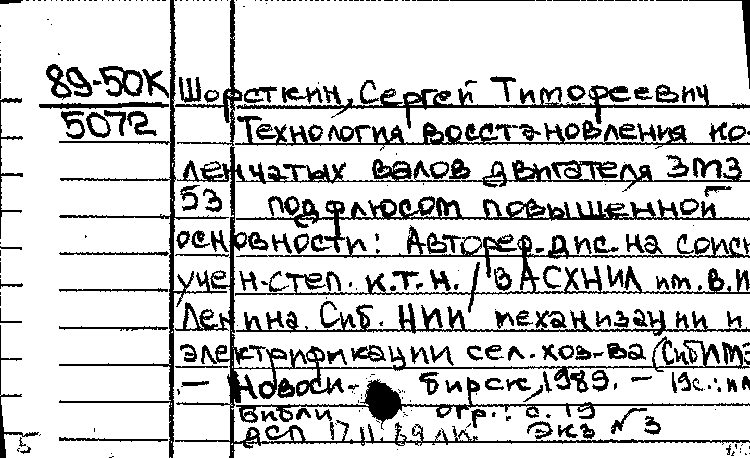 89-50К
5072
Шорсткин, Сергей Тимофеевич
Технология восстановления ко-
ленчатых валов двигателя ЗМЗ
53 под флюсом повышенной
основности: Автореф. дис. на соиск.
учен. степ. к.т.н. / ВАСХНИЛ им. В.И.
Ленина. Сиб. НИИ механизации и
электрификации сел. хоз-ва (СибИМЭ
— Новоси- бирск, 1989. — 19с.: ил
Библи огр.: с. 19
ДСП 17.11.89 ЛК. Экз № 3